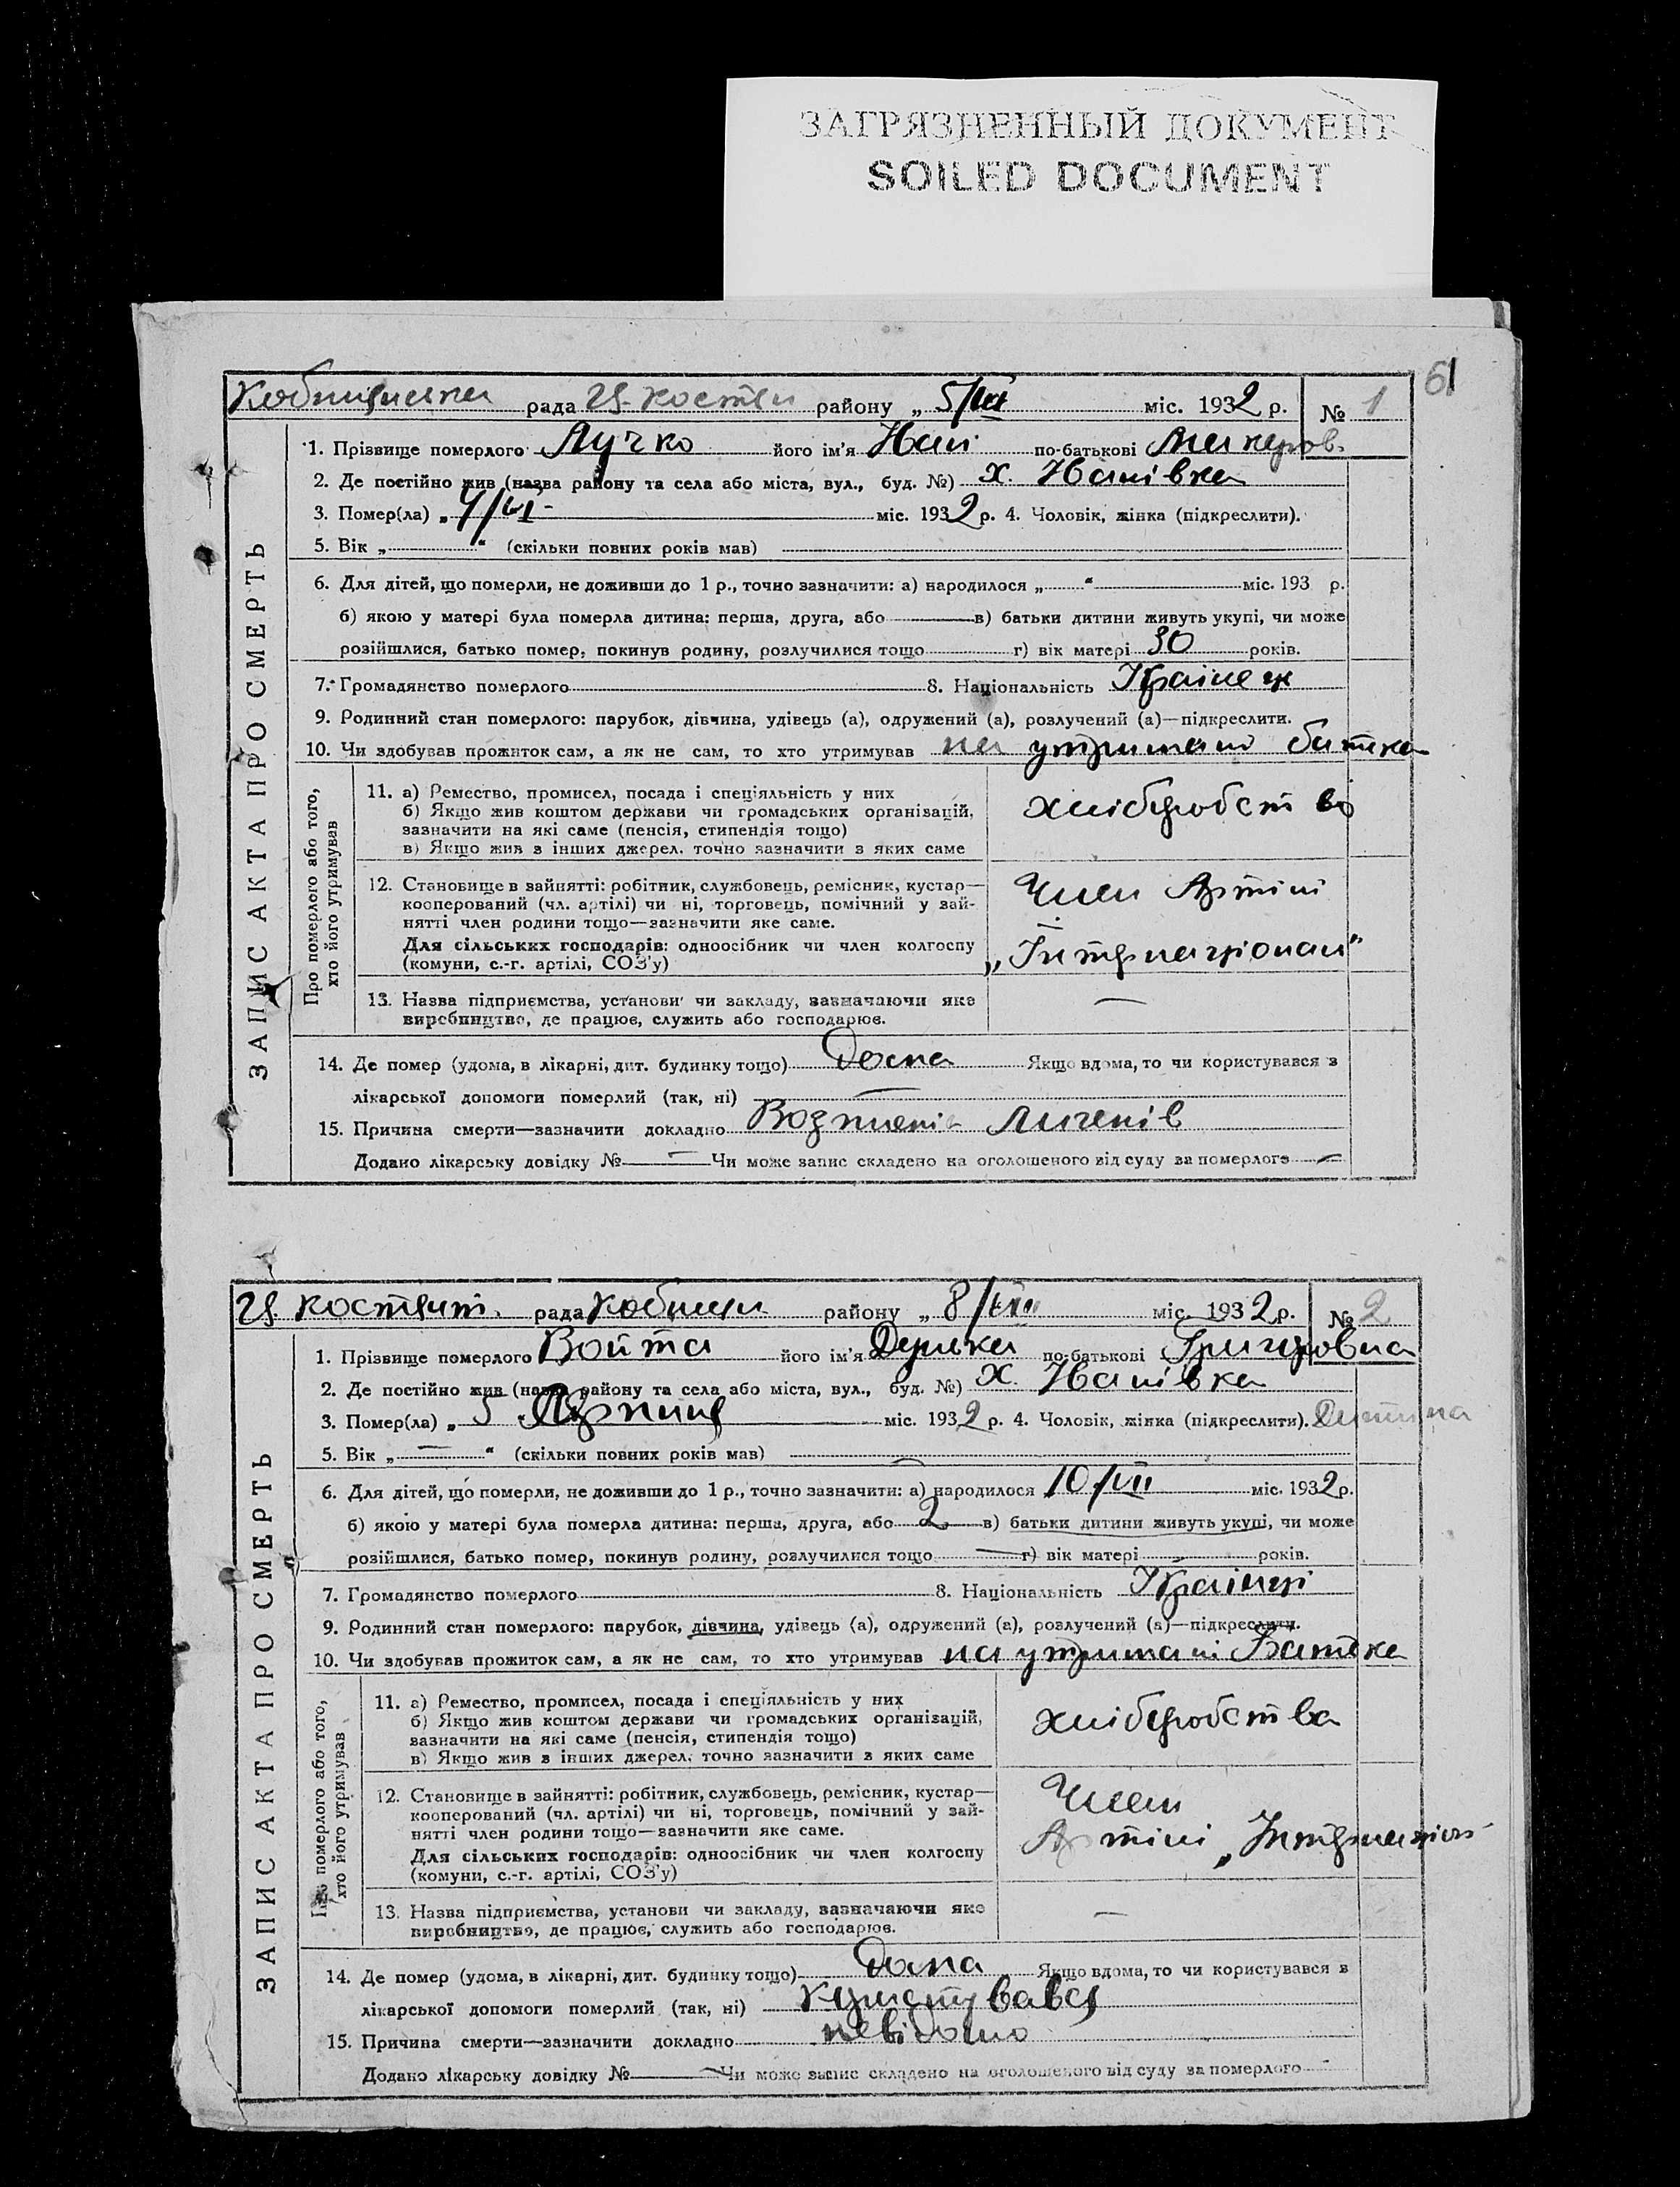 ЗАГРЯЗНЕННЫЙ ДОКУМЕНТ
SOILED DOCUMENT
61
рада район у „ 5/ міс. 1932 р. № 1
ЗАПИС АКТА ПРО СМЕРТЬ
1. Прізвище померлого Лучко його ім'я по-батькові
2. Де постійно жив (назва району та села або міста, вул., буд. №) х. Нанівка
3. Помер(ла) „ міс. 1932 р. 4. Чоловік, жінка (підкреслити).
5. Вік „ “ (скільки повних років мав)
6. Для дітей, що померли, не доживши до 1 р., точно зазначити: а) народилося „ “ міс. 193 р.
б) якою у матері була померла дитина: перша, друга, або в) батьки дитини живуть укупі, чи може
розійшлися, батько помер, покинув родину, розлучилися тощо г) вік матері 30 років.
7. Громадянство померлого 8. Національність
9. Родинний стан померлого: парубок, дівчина, удівець (а), одружений (а), розлучений (а)—підкреслити.
10. Чи здобував прожиток сам, а як не сам, то хто утримував на утримані батька
Про померлого або того,
хто його утримував
11. а) Ремество, промисел, посада і спеціяльність у них
б) Якщо жив коштом держави чи громадських організацій,
зазначити на які саме (пенсія, стипендія тощо)
в) Якщо жив з інших джерел, точно зазначити з яких саме
хліборобство
12. Становище в зайнятті: робітник, службовець, ремісник, кустар—
кооперований (чл. артілі) чи ні, торговець, помічний у зай-
нятті член родини тощо—зазначити яке саме.
Для сільських господарів: одноосібник чи член колгоспу
(комуни, с.-г. артілі, СОЗ'у)
Член Артілі
„Інтернаціонал“
13. Назва підприємства, установи чи закладу, зазначаючи яке
виробництво, де працює, служить або господарює.
—
14. Де помер (удома, в лікарні, дит. будинку тощо) Дома Якщо вдома, то чи користувався з
лікарської допомоги померлий (так, ні) —
15. Причина смерти—зазначити докладно
Додано лікарську довідку № — Чи може запис складено на оголошеного від суду за померлого —
рада району „ 8/ міс. 1932 р. № 2
ЗАПИС АКТА ПРО СМЕРТЬ
1. Прізвище померлого Войта його ім'я по-батькові Григоровна
2. Де постійно жив (назва району та села або міста, вул., буд. №) х. Нанівка
3. Помер(ла) „ 5 міс. 1932 р. 4. Чоловік, жінка (підкреслити). Дитина
5. Вік „ — “ (скільки повних років мав)
6. Для дітей, що померли, не доживши до 1 р., точно зазначити: а) народилося 10/VII міс. 1932 р.
б) якою у матері була померла дитина: перша, друга, або 2 в) батьки дитини живуть укупі, чи може
розійшлися, батько помер, покинув родину, розлучилися тощо — г) вік матері — років.
7. Громадянство померлого 8. Національність
9. Родинний стан померлого: парубок, дівчина, удівець (а), одружений (а), розлучений (а)—підкреслити.
10. Чи здобував прожиток сам, а як не сам, то хто утримував на утримані Батька
Про померлого або того,
хто його утримував
11. а) Ремество, промисел, посада і спеціяльність у них
б) Якщо жив коштом держави чи громадських організацій,
зазначити на які саме (пенсія, стипендія тощо)
в) Якщо жив з інших джерел, точно зазначити з яких саме
хліборобства
12. Становище в зайнятті: робітник, службовець, ремісник, кустар—
кооперований (чл. артілі) чи ні, торговець, помічний у зай-
нятті член родини тощо—зазначити яке саме.
Для сільських господарів: одноосібник чи член колгоспу
(комуни, с.-г. артілі, СОЗ'у)
Член
Артілі
13. Назва підприємства, установи чи закладу, зазначаючи яке
виробництво, де працює, служить або господарює.
—
14. Де помер (удома, в лікарні, дит. будинку тощо) Дома Якщо вдома, то чи користувався з
лікарської допомоги померлий (так, ні) користувався
15. Причина смерти—зазначити докладно невідомо
Додано лікарську довідку № — Чи може запис складено на оголошеного від суду за померлого —